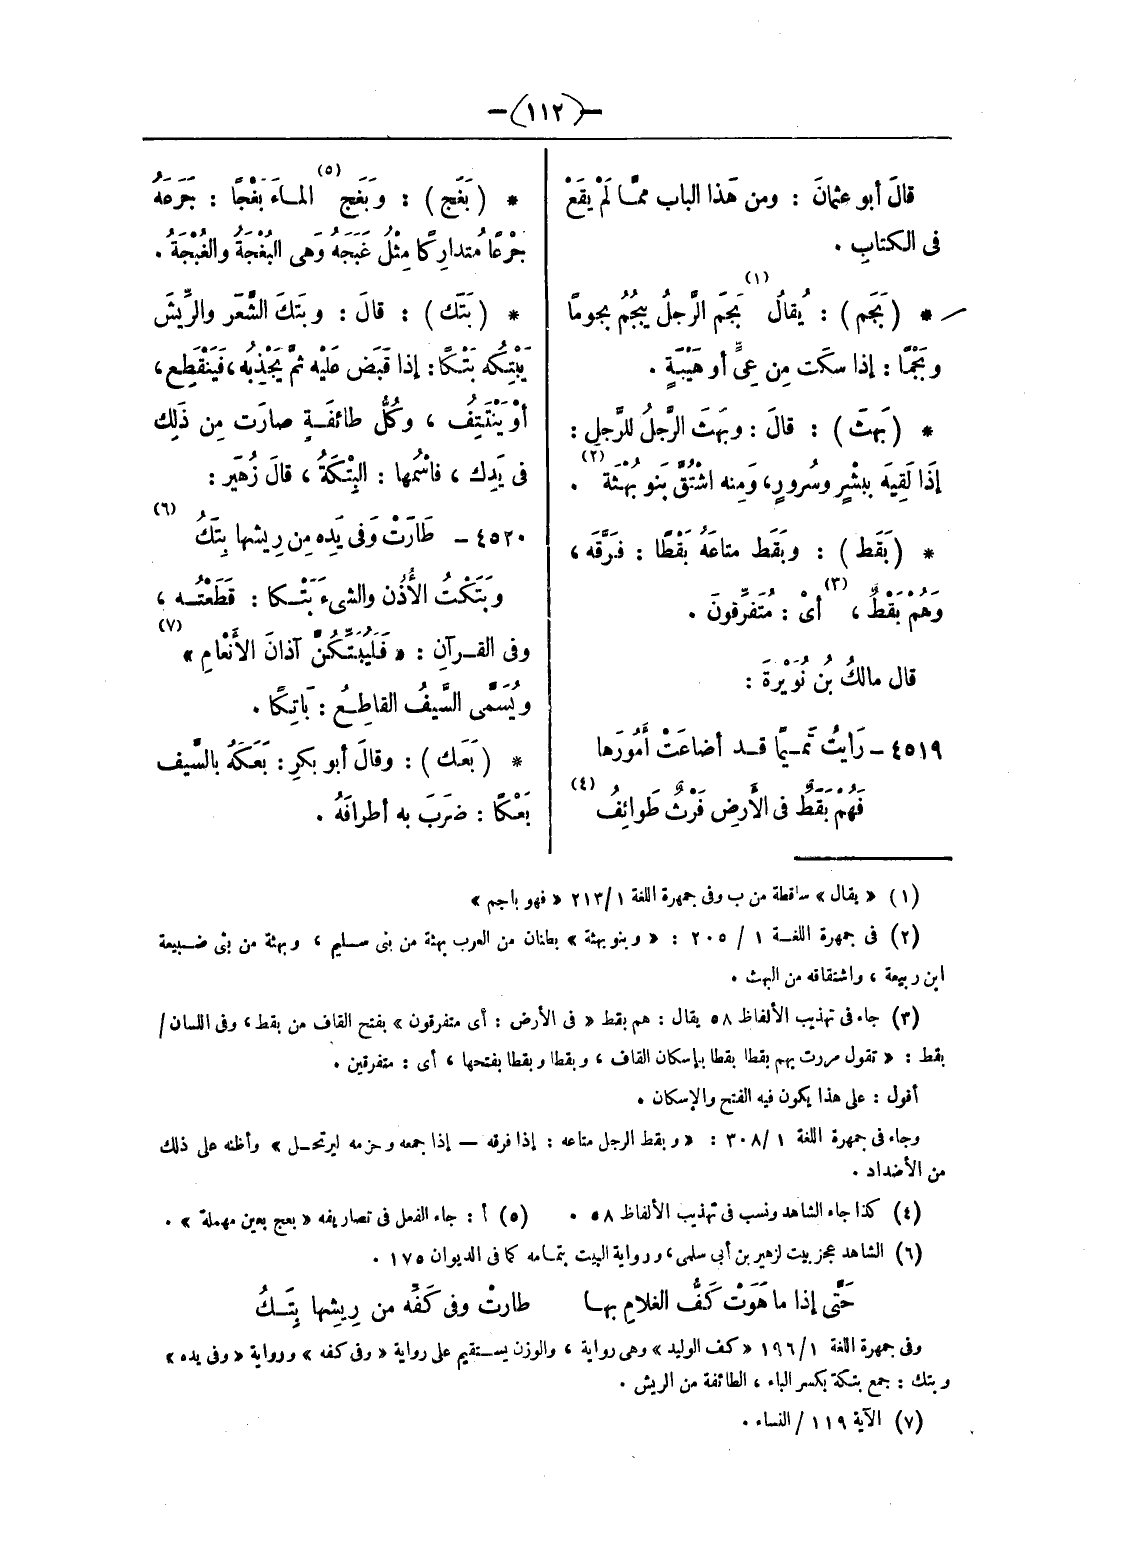 -(١١٢)-
قالَ أبو عثمانَ : ومن هَذا الباب ممَّا لَمْ يقَعْ
فى الكتابِ .
* (بَجَم) : يُقالُ (١) بَجَم الرَّجلُ يبْجُمُ بجوماً
وبَجْمًا : إذا سكَت مِن عِىٍّ أو هَيْبَةٍ .
* (بَهَثَ) : قالَ : وبَهَثَ الرَّجلُ للرَّجلِ :
إذَا لَقِيَه ببشْرٍ وسُرورٍ، وَمِنه اشْتُقَّ بَنو بُهْثَةَ (٢) .
* (بَقَط) : وبَقَط متاعَهُ بَقْطًا : فرَّقَه ،
وَهُمْ بَقْطٌ ، (٣) أىْ : مُتَفرِّقونَ .
قال مالكُ بُن نُوَيْرةَ :
٤٥١٩ – رَأيتُ تَمـيمًا قـد أضاعَتْ أُمُورَها
فَهُمْ بَقَطٌ فى الأَرضِ فَرْثٌ طَوائِفُ (٤)
* (بَغَج) : وَبَغَج (٥) المـاءَ بَغْجًا : جَرَعَهُ
جرْعًا مُتدارِكًا مِثْلُ غَبَجَهُ وَهى البُغْجَةُ والغُبْجَةُ .
* (بَتَك) : قالَ : وبَتَكَ الشَّعَر والرِّيشَ
يَبْتِكُه بَتْكًا : إذا قَبَض عَليْه ثمَّ يَجْذِبُه ، فَيَنْقَطِع ،
أوْ يَنْتَتِفُ ، وكُلُّ طائفَـةٍ صارَت مِن ذَلِك
فى يَدِك ، فاسْمُها : البِتْكَةُ ، قالَ زُهَير :
٤٥٢٠ – طَارَتْ وَفى يَدِه مِن رِيشِها بِتَكُ (٦)
وبَتَكْتُ الأُذُن والشىءَ بَتْـكا : قطَعْتُـه ،
وفى القـرآنِ : « فَلَيُبَتِّكُنَّ آذانَ الأَنْعامِ » (٧)
ويُسَمَّى السَّيفُ القاطِـعُ : بَاتِكًا .
* (بَعَك) : وقالَ أبو بكرٍ : بَعَكَهُ بالسَّيف
بَعْكًا : ضرَبَ به أطرافَهُ .
(١) « يقال » ساقطة من ب وفى جمهرة اللغة ٢١٣/١ « فهو باجم »
(٢) فى جمهرة اللغـة ١ / ٢٠٥ : « وبنو بهثة » بطنان من العرب بهثة من بنى سـليم ، وبهثة من بنى ضـبيعة
ابن ربيعة ، واشتقاقه من البهث .
(٣) جاء فى تهذيب الألفاظ ٥٨ يقال : هم بقط « فى الأرض : أى متفرقون » بفتح القاف من بقط ، وفى اللسان /
بقط : « تقول مررت بهم بقطا بقطا بإسكان القاف ، وبقطا وبقطا بفتحها ، أى : متفرقين .
أقول : على هذا يكون فيه الفتح والإسكان .
وجاء فى جمهرة اللغة ٣٠٨/١ : « وبقط الرجل متاعه : إذا فرقه – إذا جمعه وحزمه ليرتحـل » وأظنه على ذلك
من الأضداد .
(٤) كذا جاء الشاهد ونسب فى تهذيب الألفاظ ٥٨ . (٥) أ : جاء الفعل فى تصاريفه « بعج بعين مهملة » .
(٦) الشاهد عجز بيت لزهير بن أبى سلمى ، ورواية البيت بتمـامه كما فى الديوان ١٧٥ .
حَتَّى إذا ما هَوَتْ كَفُّ الغلامِ بهـا طارتْ وفى كَفِّه من رِيشِها بِتَـكُ
وفى جمهرة اللغة ١٩٦/١ « كف الوليد » وهى رواية ، والوزن يسـتقيم على رواية « وفى كفه » ورواية « وفى يده »
وبتك : جمع بتكة بكسر الباء ، الطائفة من الريش .
(٧) الآية ١١٩ / النساء .